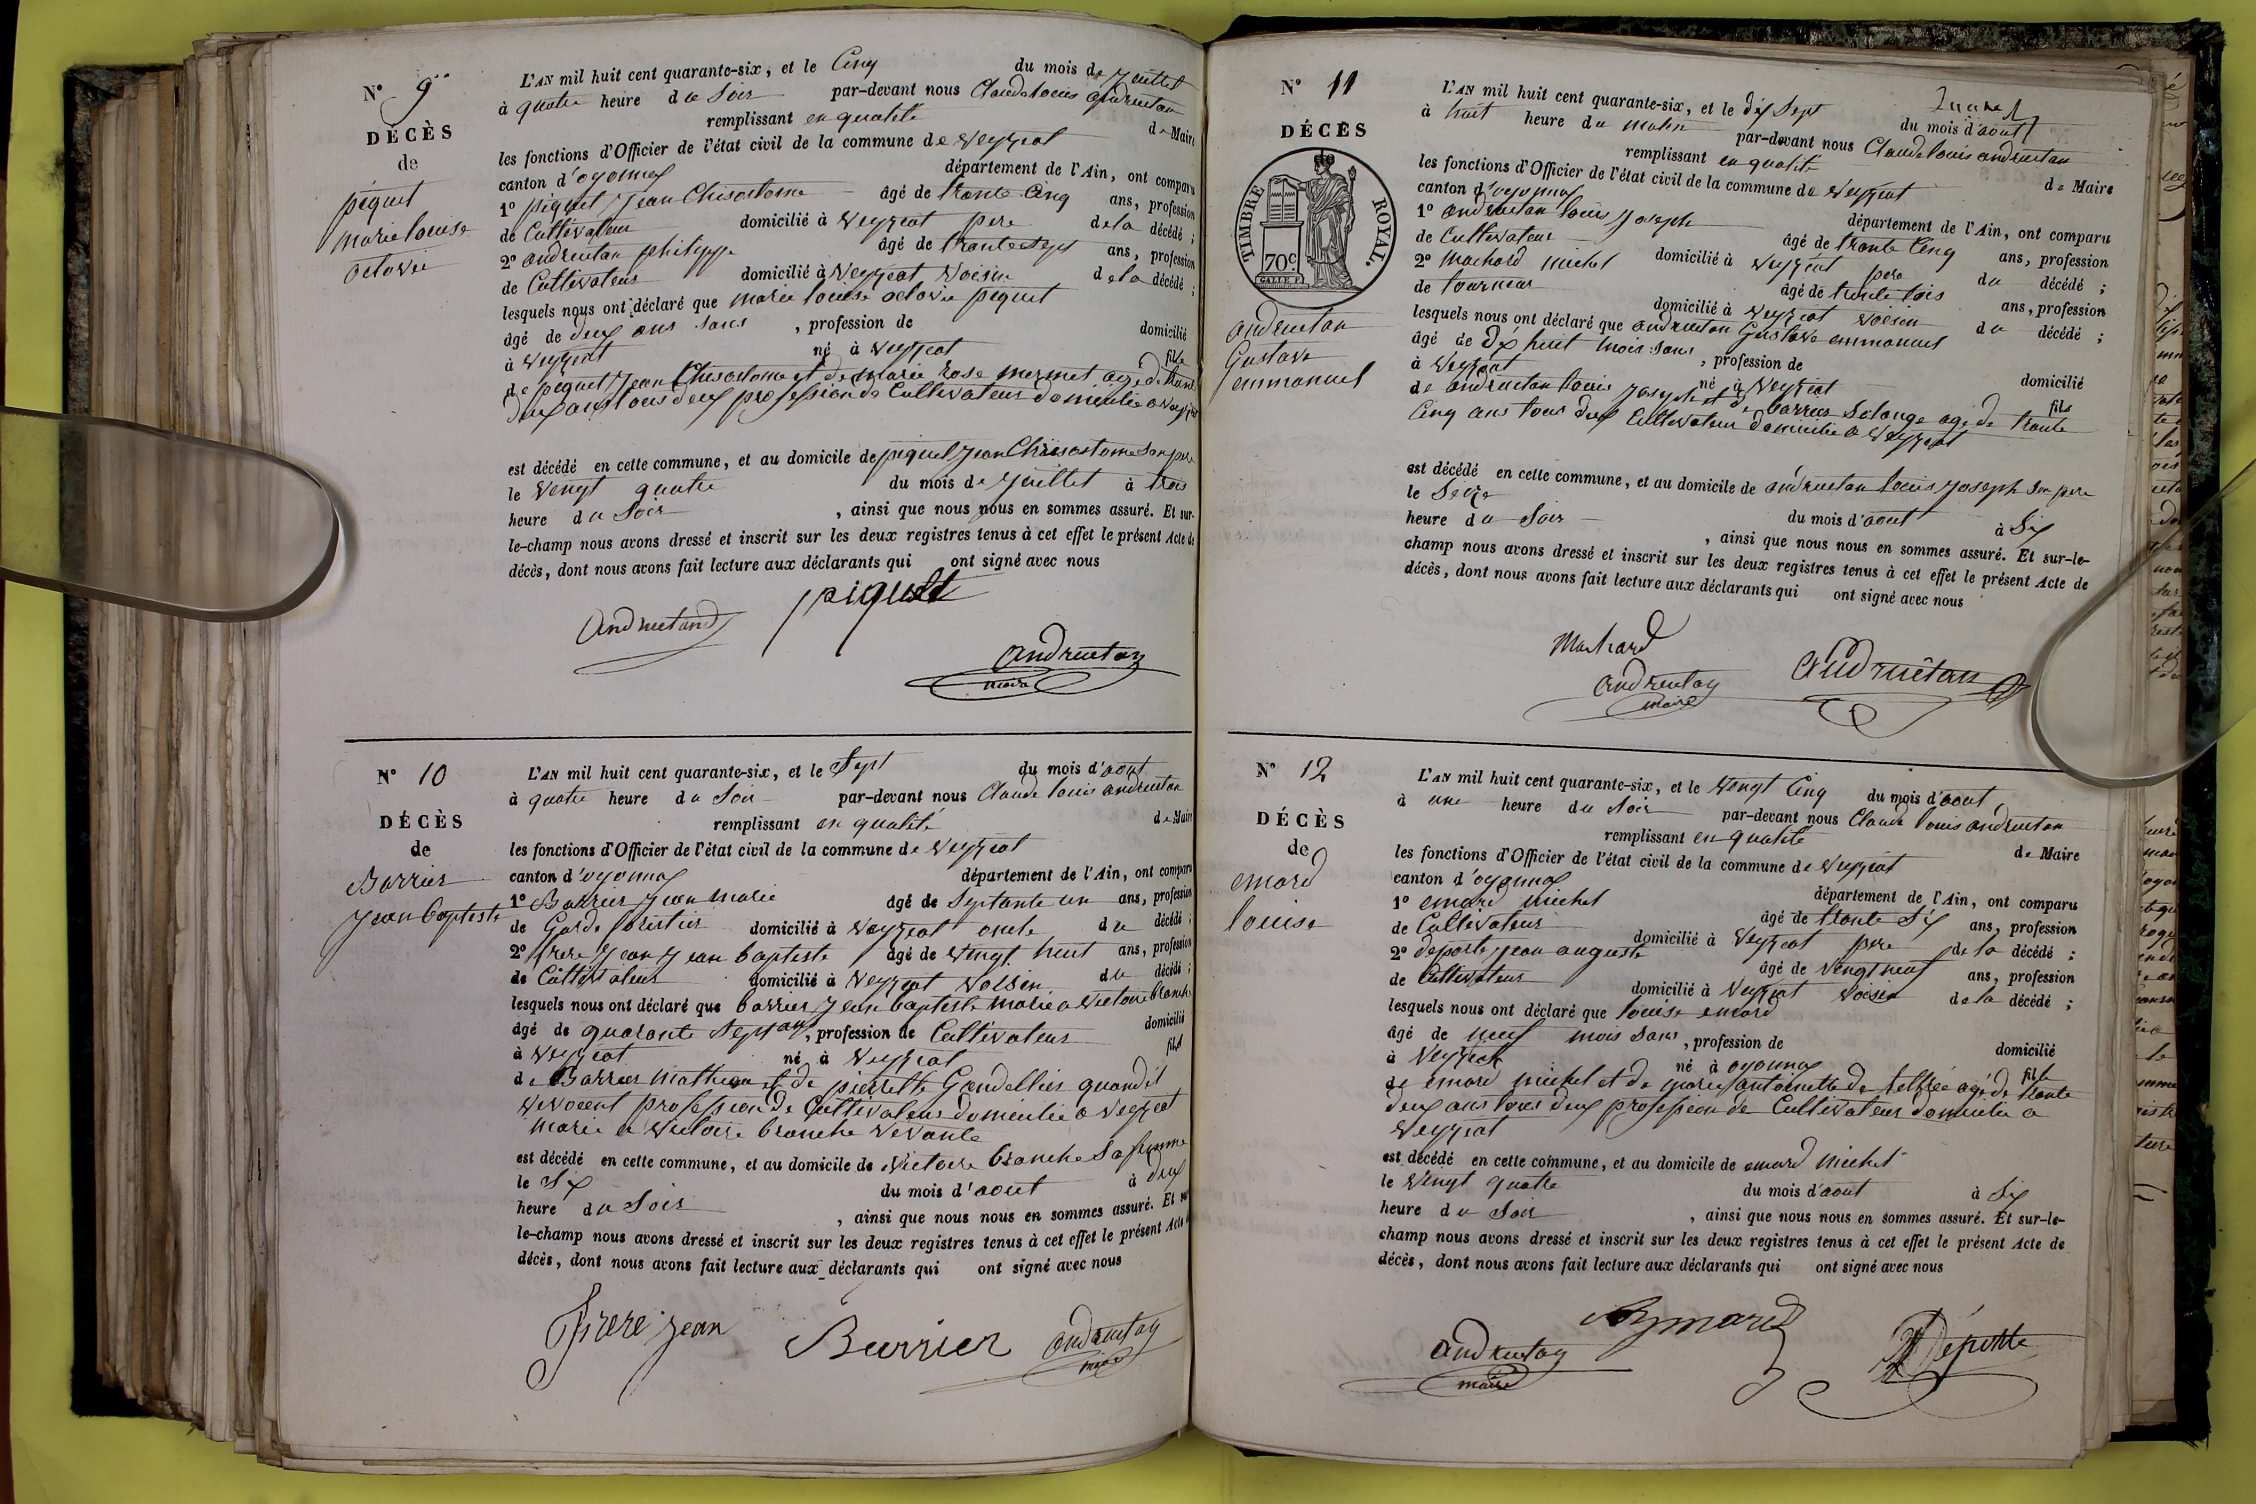 N° 9
DÉCÈS
de
piquet
marie louise
octavie
L'AN mil huit cent quarante-six, et le Cinq du mois de Juillet
à quatre heure du Soir par-devant nous Claude louis andruetan
remplissant en qualité de Maire
les fonctions d'Officier de l'état civil de la commune de veyziat
canton d'oyonnax département de l'Ain, ont comparu
1° piquet Jean Chisostome âgé de trante Cinq ans, profession
de Cultivateur domicilié à veyziat pere de la décédé ;
2° andruetan philippe âgé de trante sept ans, profession
de Cultivateur domicilié à veyziat voisin de la décédé ;
lesquels nous ont déclaré que marie louise octavie piquet
âgé de deux ans sans , profession de domicilié
à veyziat né à veyziat fille
de piquet Jean Chisostome et de marie rose mermet agé de trante
deux ans tous deux profession de Cultivateur domicilié a veyziat
est décédé en cette commune, et au domicile de piquet Jean Chisostome son pere
le vengt quatre du mois de Juillet à trois
heure du Soir , ainsi que nous nous en sommes assuré. Et sur-
le-champ nous avons dressé et inscrit sur les deux registres tenus à cet effet le présent Acte de
décès, dont nous avons fait lecture aux déclarants qui ont signé avec nous
andruetand piquet
andruetan
maire
N° 10
DÉCÈS
de
Barrier
Jean baptiste
L'AN mil huit cent quarante-six, et le Sept du mois d'aout
à quatre heure du Soir par-devant nous Claude louis andruetan
remplissant en qualité de Maire
les fonctions d'Officier de l'état civil de la commune de veyziat
canton d'oyonnax département de l'Ain, ont comparu
1° Barrier Jean marie âgé de Septante un ans, profession
de Garde forestier domicilié à veyziat oncle du décédé ;
2° frere Jean Jean baptiste âgé de vengt huit ans, profession
de Cultivateur domicilié à veyziat voisin du décédé ;
lesquels nous ont déclaré que barrier Jean baptiste marie a victoire branche
âgé de quarante Sept ans, profession de Cultivateur domicilié
à veyziat né à veyziat fils
de Barrier mathieu et de pierrette Gandellier quand il
vivoient profession de Cultivateur domicilié a veyziat
marie a victoire branche vivante
est décédé en cette commune, et au domicile de victoire branche sa femme
le Six du mois d'aout à deux
heure du Soir , ainsi que nous nous en sommes assuré. Et sur
le-champ nous avons dressé et inscrit sur les deux registres tenus à cet effet le présent Acte
décès, dont nous avons fait lecture aux déclarants qui ont signé avec nous
frere jean Barrier andruetan
maire
N° 11
DÉCÈS
TIMBRE ROYAL.
70c
andruetan
Gustave
emmanuel
L'AN mil huit cent quarante-six, et le dix Sept du mois d'aout
à huit heure du matin par-devant nous Claude louis andruetan
remplissant en qualité de Maire
les fonctions d'Officier de l'état civil de la commune de veyziat
canton d'oyonnax département de l'Ain, ont comparu
1° andruetan louis Joseph âgé de trante Cinq ans, profession
de Cultivateur domicilié à veyziat pere du décédé ;
2° machard michel âgé de trente tois ans, profession
de tourneur domicilié à veyziat voisin du décédé ;
lesquels nous ont déclaré que andruetan Gustave emmanuel
âgé de dix huit mois sans , profession de domicilié
à veyziat né à veyziat fils
de andruetan louis Joseph et de barrier Solange agé de trante
Cinq ans tous deux Cultivateur domicilié a veyziat
est décédé en cette commune, et au domicile de andruetan louis Joseph son pere
le Seize du mois d'aout à Six
heure du Soir , ainsi que nous nous en sommes assuré. Et sur-le-
champ nous avons dressé et inscrit sur les deux registres tenus à cet effet le présent Acte de
décès, dont nous avons fait lecture aux déclarants qui ont signé avec nous
Machard
andruetan andruêtan
maire
N° 12
DÉCÈS
de
emard
louise
L'AN mil huit cent quarante-six, et le vengt Cinq du mois d'aout,
à une heure du Soir par-devant nous Claude louis andruetan
remplissant en qualité de Maire
les fonctions d'Officier de l'état civil de la commune de veyziat
canton d'oyonnax département de l'Ain, ont comparu
1° emard michel âgé de trante Six ans, profession
de Cultivateur domicilié à veyziat pere de la décédé ;
2° deporte jean auguste âgé de vengt neuf ans, profession
de Cultivateur domicilié à veyziat voisin de la décédé ;
lesquels nous ont déclaré que louise emard
âgé de neuf mois sans , profession de domicilié
à veyziat né à oyonnax fille
de emard michel et de marie antoinette de agé de trante
deux ans tous deux profession de Cultivateur domicilié a
veyziat
est décédé en cette commune, et au domicile de emard michel
le vengt quatre du mois d'aout à Six
heure du Soir , ainsi que nous nous en sommes assuré. Et sur-le-
champ nous avons dressé et inscrit sur les deux registres tenus à cet effet le présent Acte de
décès, dont nous avons fait lecture aux déclarants qui ont signé avec nous
andruetan Eymard Déporte
maire